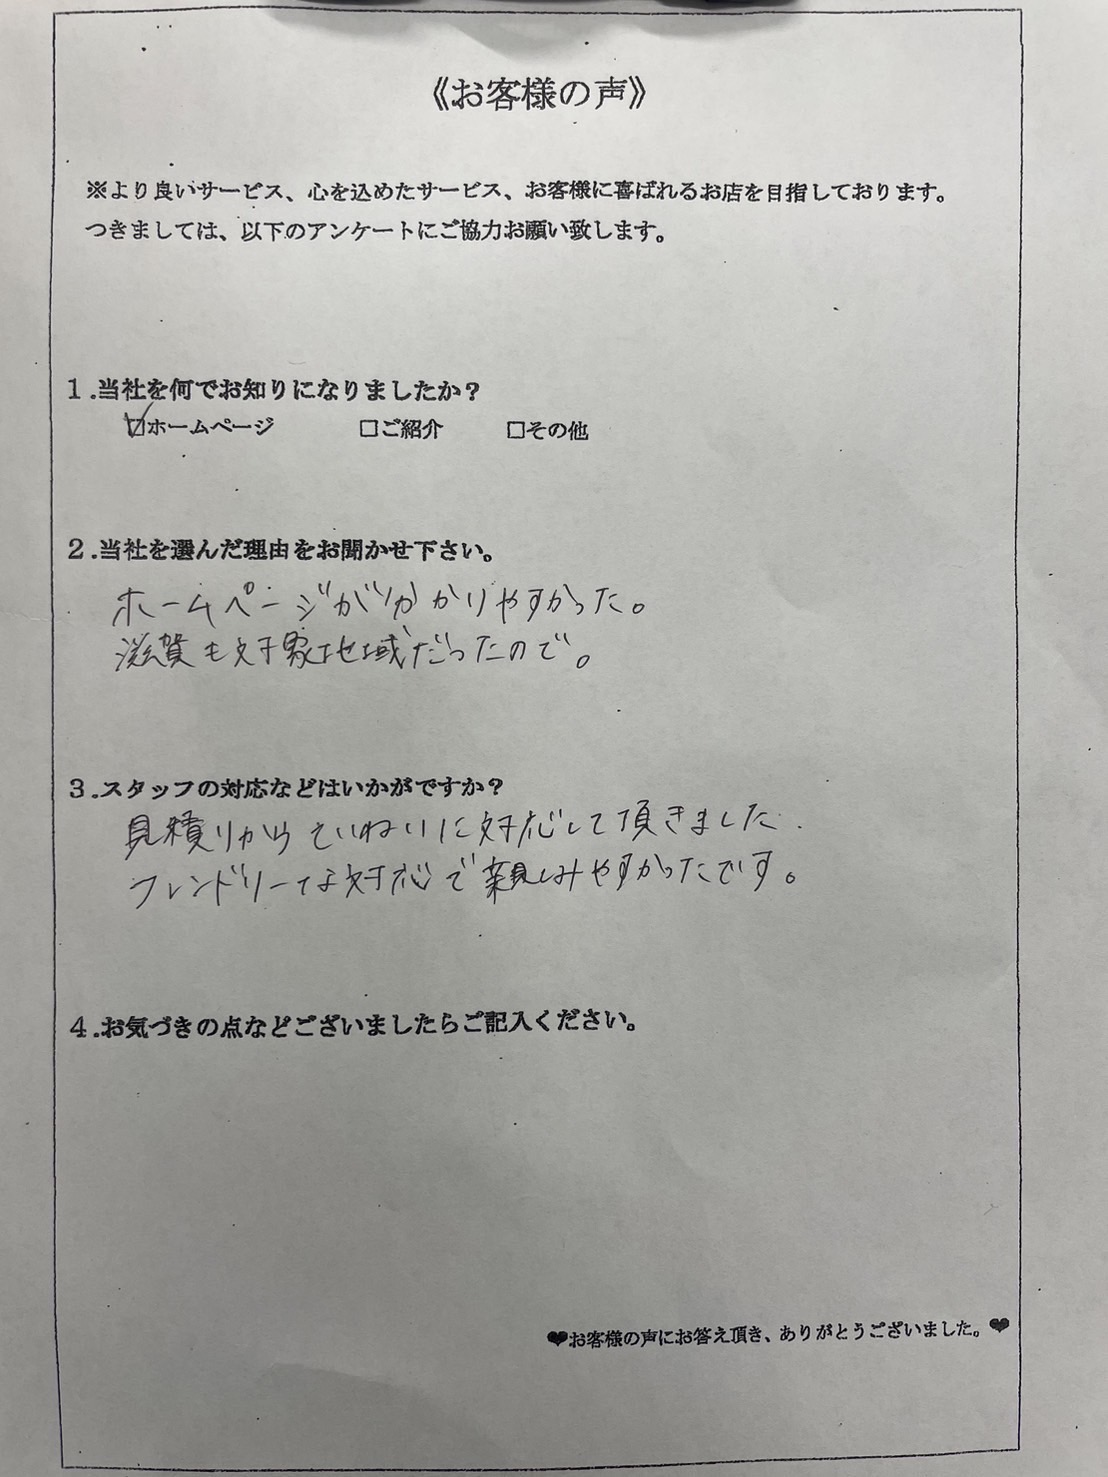 《お客様の声》
※より良いサービス、心を込めたサービス、お客様に喜ばれるお店を目指しております。
つきましては、以下のアンケートにご協力お願い致します。
1.当社を何でお知りになりましたか？
☑ホームページ □ご紹介 □その他
2.当社を選んだ理由をお聞かせ下さい。
ホームページがわかりやすかった。
滋賀も対象地域だったので。
3.スタッフの対応などはいかがですか？
見積りからていねいに対応して頂きました.
フレンドリーな対応で親しみやすかったです。
4.お気づきの点などございましたらご記入ください。
❤お客様の声にお答え頂き、ありがとうございました。❤